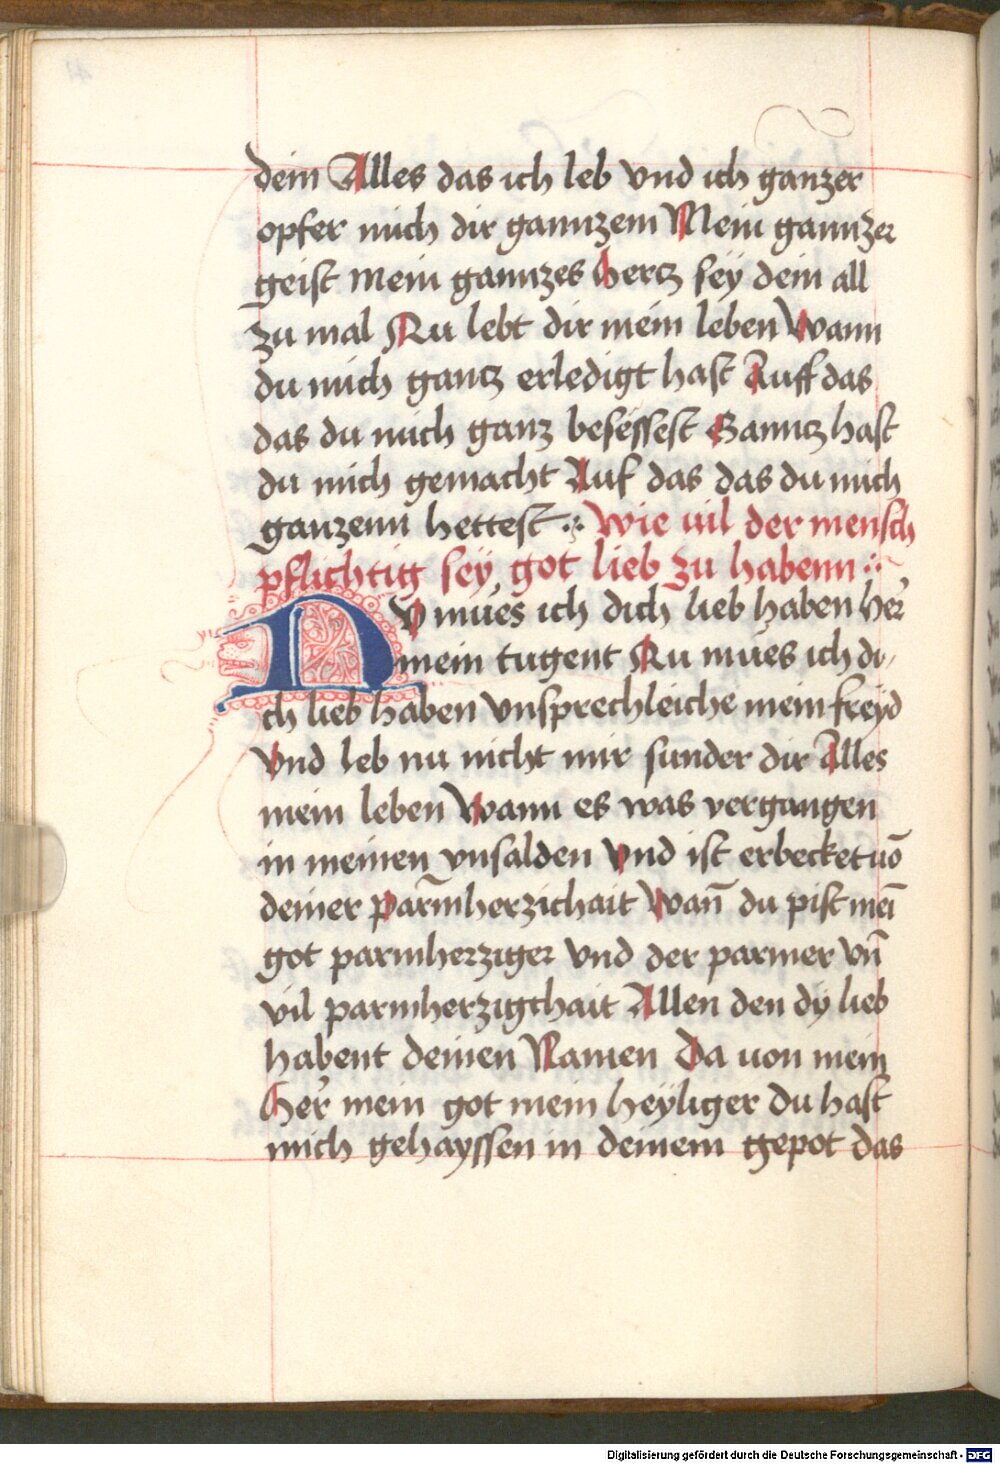 dein Alles das ich leb vnd ich ganzer
opfer mich dir gannzem Mein gannzer
geist mein gannzes hercz sey dein all
zu mal Nu lebt dir mein leben Wann
du mich gancz erledigt hast Auff das
das du mich ganz besëssest Ganncz hast
du mich gemacht Auf das das du mich
ganzenn hettest Wie uil der mensch
pflichtig sey got lieb zu habenn
Nv mües ich dich lieb haben her̄
mein tugent Nu mües ich di,
ch lieb haben vnsprechleiche mein freyd
Vnd leb nu nicht mir sunder dir Alles
mein leben Wann es was vergangen
in meinen vnsalden Vnd ist erbecket uō
deiner parm̄herzichait Wan̄ du pist meī
got parmherziger vnd der parmer vn̄
vil parmherzigchait Allen den dy lieb
habent deinen Namen Da uon mein
her̄ mein got mein heyliger du hast
mich gehayssen in deinem gepot das
Digitalisierung gefördert durch die Deutsche Forschungsgemeinschaft - DFG